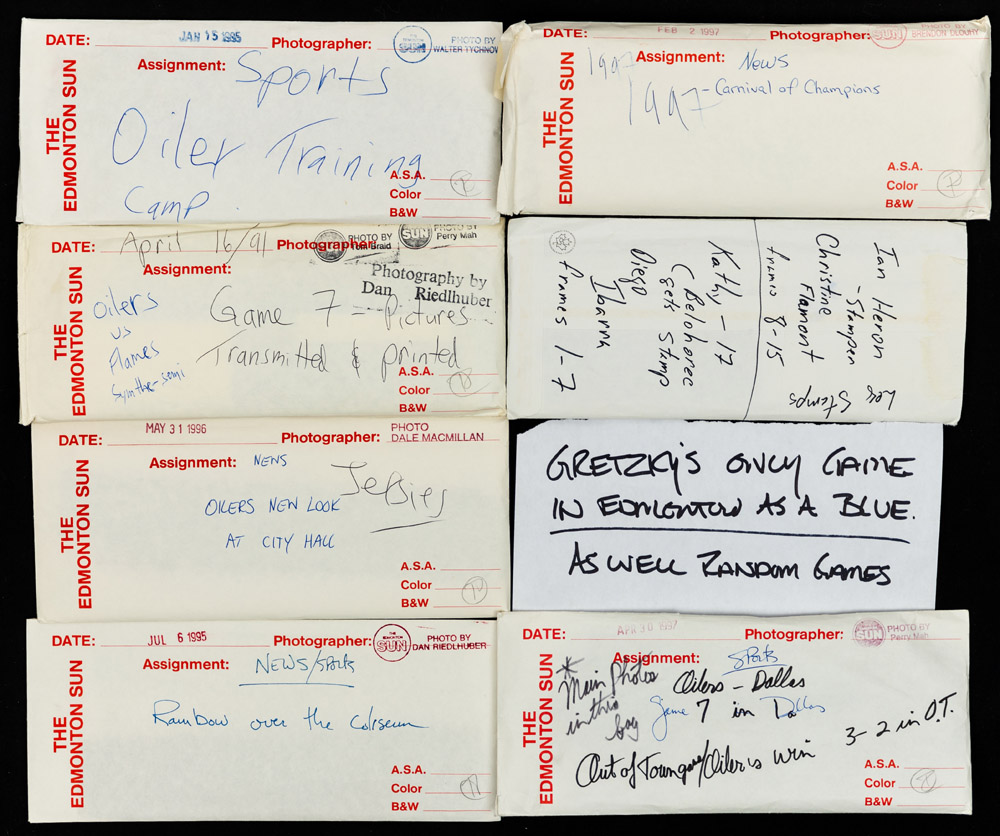 DATE: JAN 15 1995 Photographer: THE EDMONTON SUN PHOTO BY WALTER TYCHNOW
Assignment: Sports
Oiler Training
Camp
A.S.A.
Color
B&W
THE EDMONTON SUN
DATE: FEB 2 1997 Photographer: SUN PHOTO BY
1997 Assignment: News
1997 - Carnival of Champions
A.S.A.
Color
B&W
THE EDMONTON SUN
DATE: April 16/91 Photographer: PHOTO BY Tom Braid SUN PHOTO BY Perry Mah
Assignment: Photography by
Dan Riedlhuber
Oilers
vs
Flames
Smythe-semi
Game 7 - Pictures
Transmitted & printed
A.S.A.
Color
B&W
THE EDMONTON SUN
Ian Heron
- Stampen
Christine
Flamont
frames 8-15
Les Stamps
Kathy - 17
( Belohorec
gets Stamp
Diego
Ibarra
frames 1-7
DATE: MAY 31 1996 Photographer: PHOTO DALE MACMILLAN
Assignment: NEWS
Jersies
OILERS NEW LOOK
AT CITY HALL
A.S.A.
Color
B&W
THE EDMONTON SUN
GRETZKY'S ONLY GAME
IN EDMONTON AS A BLUE.
AS WELL RANDOM GAMES
DATE: JUL 6 1995 Photographer: THE EDMONTON SUN PHOTO BY DAN RIEDLHUBER
Assignment: NEWS/Sports
Rainbow over the Coliseum
A.S.A.
Color
B&W
THE EDMONTON SUN
DATE: APR 30 1997 Photographer: SUN PHOTO BY Perry Mah
Assignment: Sports
* Main Photos
in this
bag
Oilers - Dallas
Game 7 in Dallas
3-2 in O.T.
Out of Town game/Oiler's win
A.S.A.
Color
B&W
THE EDMONTON SUN